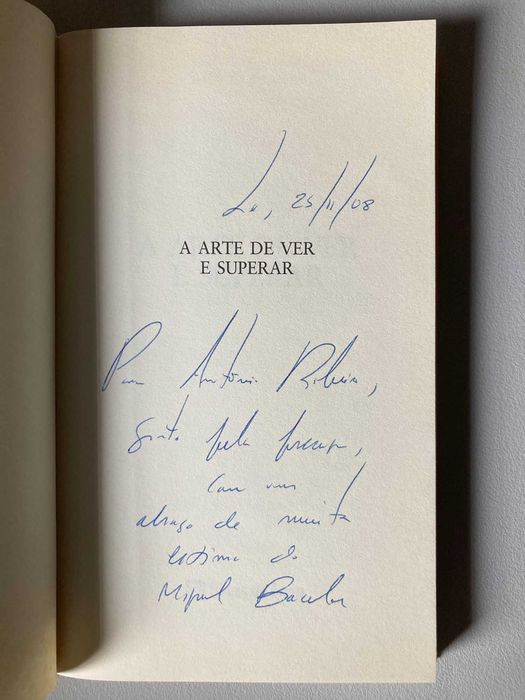 Lx, 25/11/08
A ARTE DE VER
E SUPERAR
Para António Ribeiro,
grato pela presença,
com um
abraço de muita
estima do
Miguel Bacelar